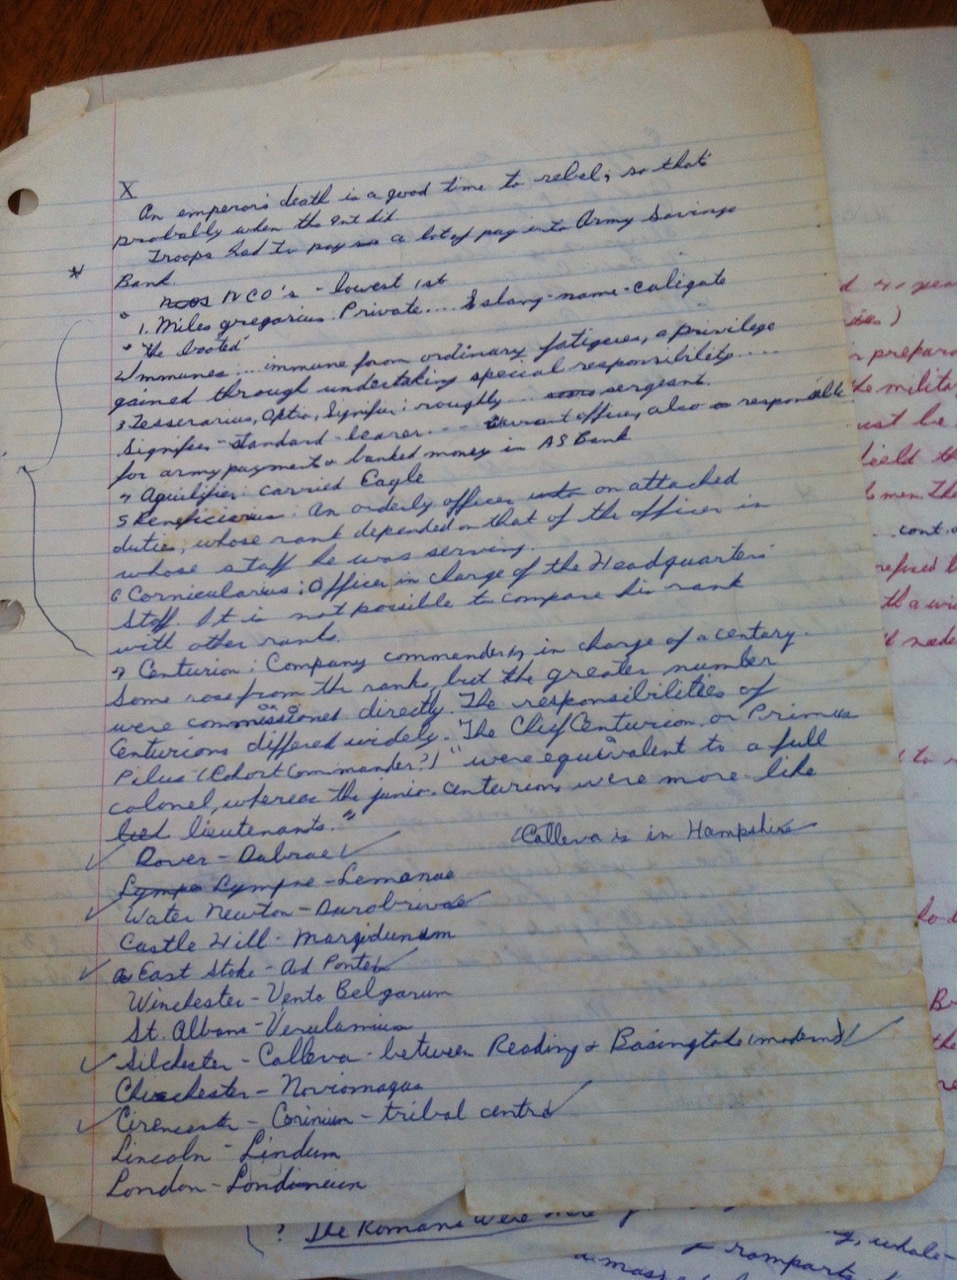 X
An emperor's death is a good time to rebel; so that's
probably when the Ont did
Troops had to pay so a lot of pay into Army Savings
Bank.
NCO's - lowest 1st
1. Miles gregarius. Private.... slang-name-caligate
"the booted"
2 Immunes:.. immune from ordinary fatigues, a privilege
gained through undertaking special responsibility....
3 Tesserarius, Optio, Signifer: roughly... sergeant.
Signifer - standard-bearer.... warrant officer, also responsible
for army payment & banked money in AS Bank
4 Aquilifer: carried Eagle
5 Beneficiarius: An orderly officer on attached
duties, whose rank depended on that of the officer in
whose staff he was serving.
6 Cornicularius: Officer in charge of the Headquarters
Staff. It is not possible to compare his rank
with other ranks.
7 Centurion: Company commander, in charge of a century.
Some rose from the ranks, but the greater number
were commissioned directly. The responsibilities of
Centurions differed widely. The Chief Centurion or Primus
Pilus (Cohort Commander?) "were equivalent to a full
colonel, whereas the junior centurions were more like
lieutenants."
(Calleva is in Hampshire
Dover - Dubrae
Lympne - Lemanae
Water Newton - Durobrivae
Castle Hill - Margidunum
East Stoke - Ad Pontem
Winchester - Venta Belgarum
St. Albans - Verulamium
Silchester - Calleva - between Reading & Basingtoke (modern)
Chichester - Noviomagus
Cirencester - Corinium - tribal centre
Lincoln - Lindum
London - Londinium
? The Romans were
whole-
a mass
ramparts
prepara
the milita
ust be
field th
men. The
..cont.
refused t
th a wi